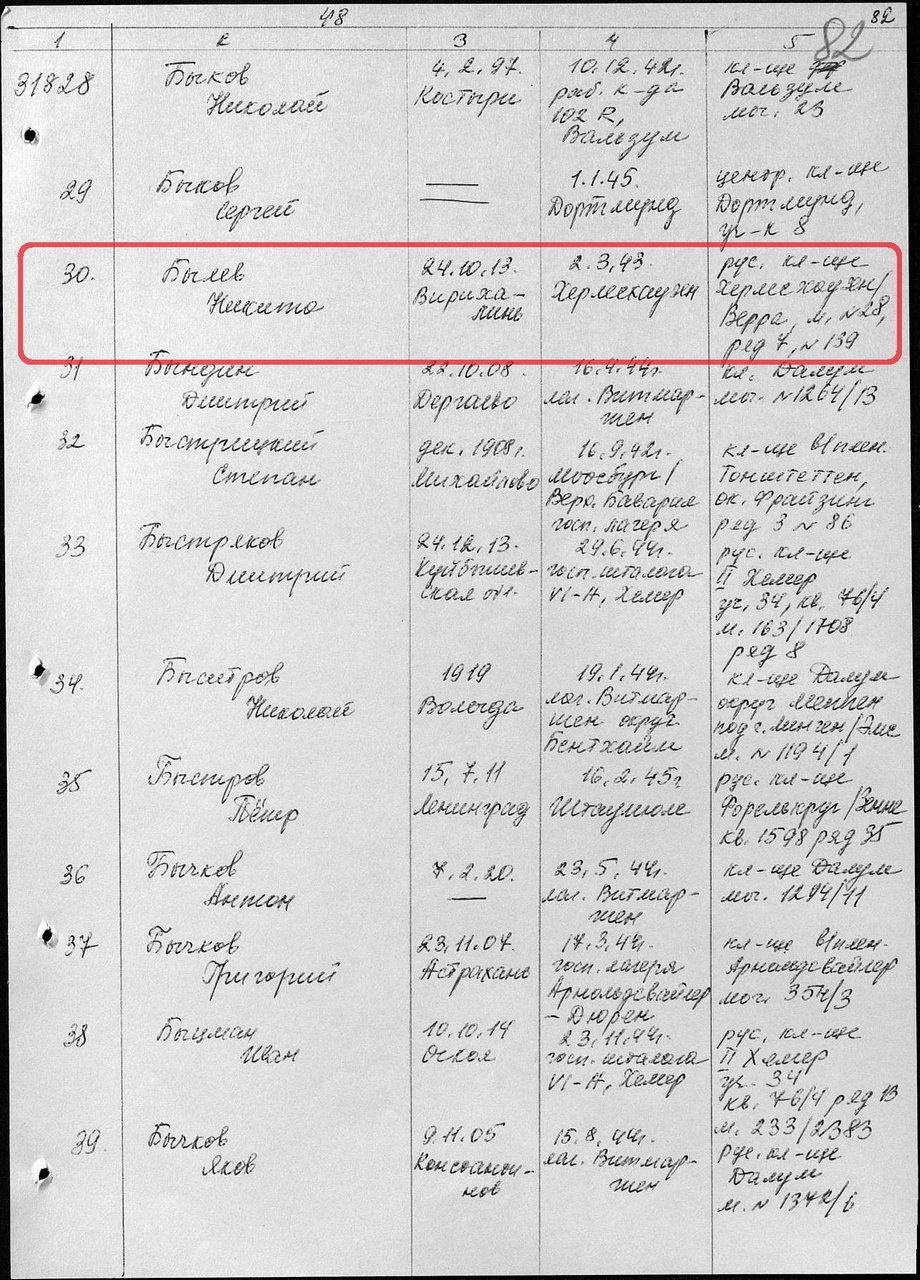 48 82
82
1 2 3 4 5
31828 Бычков Николай 4.2.97. Костыри 10.12.42г. раб. к-да 102 R, Вальзум кл-ще Вальзум мог. 23
29 Бычков Сергей — 1.1.45. Дортмунд центр. кл-ще Дортмунд, уч-к 8
30. Былев Никита 24.10.13. Вириха-линь 2.3.43. Херлесхаузен рус. кл-ще Херлесхаузен/Верра, м. №28, ряд 7, №139
31 Бындин Дмитрий 22.10.08. Дергаево 16.4.44г. лаг. Витмар-шен кл. Далум мог. №1264/13
32 Быстрицкий Степан дек. 1908г. Михайлово 16.9.42г. Моосбург/Верх. Бавария госп. лагеря кл-ще в/плен. Тонштеттен, ок. Фрайзинг ряд 3 № 86
33 Быстряков Дмитрий 24.12.13. Куйбышев-ская обл. 29.6.44г. госп. шталага VI-A, Хемер рус. кл-ще II Хемер уч. 34, кв. 76/4 м. 163/1708 ряд 8
34. Быстров Николай 1919 Вологда 19.1.44г. лаг. Витмар-шен округ Бентхайм кл-ще Далум округ Меппен под г. Минген/Эмс м. № 1194/1
35 Быстров Пётр 15.7.11 Ленинград 16.2.45г Штаумюле рус. кл-ще Форелькруг/Зенне кв. 1598 ряд 35
36 Бычков Антон 7.2.20. — 23.5.44г. лаг. Витмар-шен кл-ще Далум мог. 1294/11
37 Бычков Григорий 23.11.07. Астрахань 17.3.44г. госп. лагеря Арнольдсвайлер - Дюрен кл-ще в/плен. Арнольдсвайлер мог. 354/3
38 Быцман Иван 10.10.14 Оскол 23.11.44г. госп. шталага VI-A, Хемер рус. кл-ще II Хемер уч. 34 кв. 76/4 ряд 13 м. 233/2383
39. Бычков Яков 9.11.05 Константи-нов 15.8.44г. лаг. Витмар-шен рус. кл-ще Далум м. № 1342/6